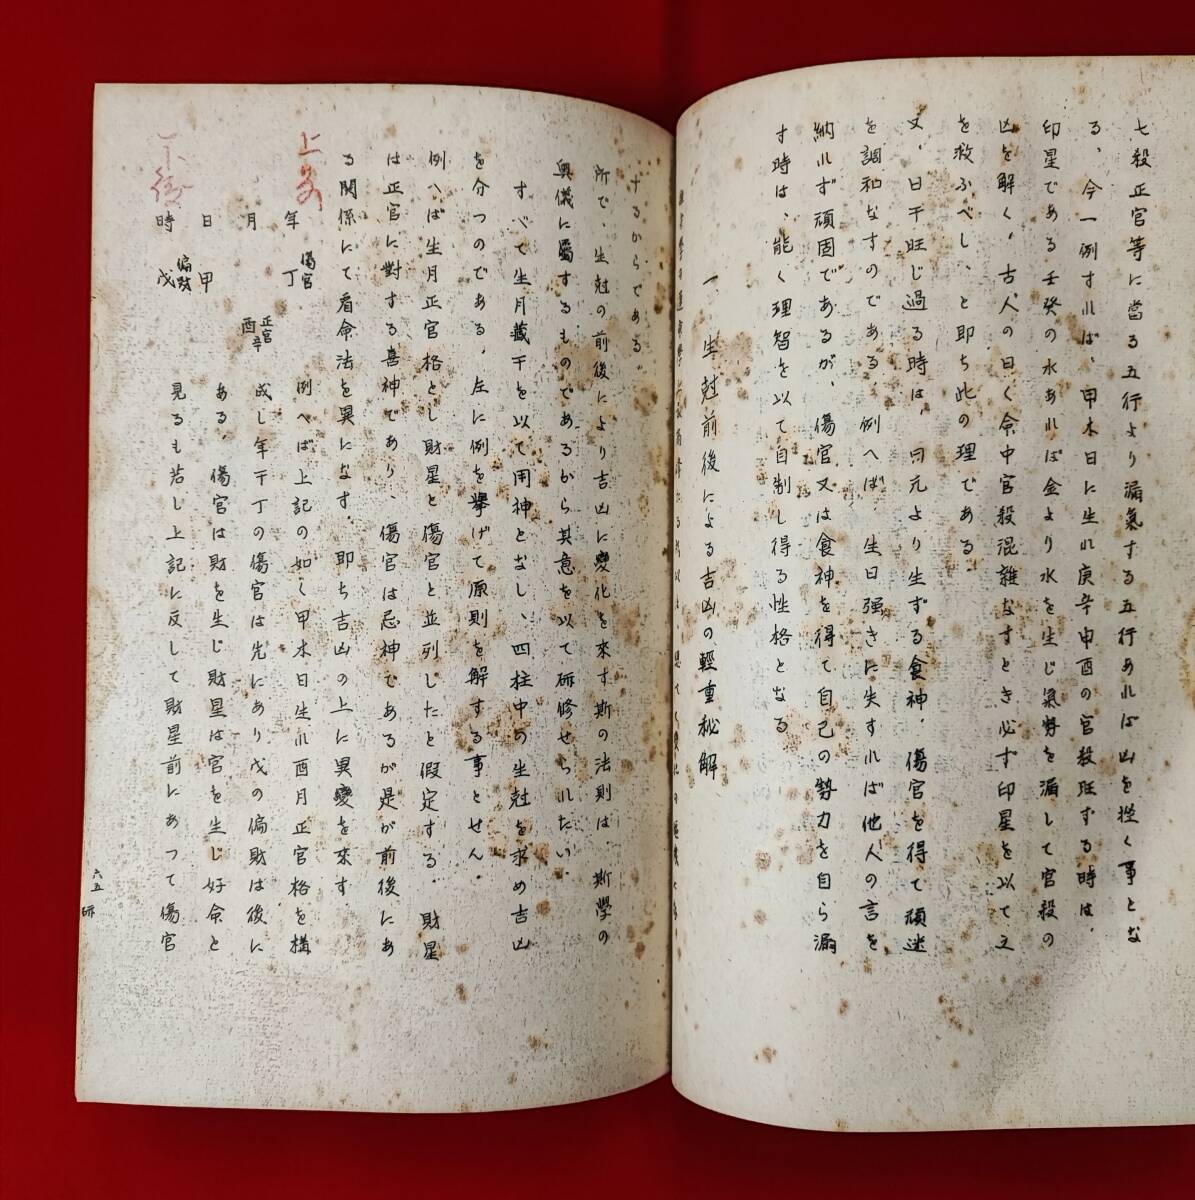 七殺正官等に當る五行より漏氣する五行あれば凶を挫く事とな
る、今一例すれば、甲木日に生れ庚辛申酉の官殺旺ずる時は、
印星である壬癸の水あれば金より水を生じ氣勢を漏して官殺の
凶を解く、古人の曰く命中官殺混雑なすとき必ず印星を以て之
を救ふべし、と即ち此の理である、
又、日干旺じ過る時は、日元より生ずる食神、傷官を得て頑迷
を調和なすのである、例へば、生日强きに失すれば他人の言を
納れず頑固であるが、傷官又は食神を得て自己の勢力を自ら漏
す時は、能く理智を以て自制し得る性格となる
一 生尅前後による吉凶の輕重秘解
するからである。
所で、生尅の前後により吉凶に變化を來す斯の法則は、斯學の
奥儀に屬するものであるから其意を以て研修せられたい、
すべて生月藏干を以て用神となし、四柱中の生尅を求め吉凶
を分つのである、左に例を擧げて原則を解する事とせん、
例へば生月正官格とし財星と傷官と並列したと假定する、財星
は正官に對する喜神であり、傷官は忌神であるが是が前後にあ
る關係にて看命法を異になす、即ち吉凶の上に異變を來す、
例へば上記の如く甲木日生れ酉月正官格を構
成し年干丁の傷官は先にあり戊の偏財は後に
ある、傷官は財を生じ財星は官を生じ好命と
見るも若し上記に反して財星前にあつて傷官
年 月 日 時
傷官
丁
正官
酉辛
甲
偏財
戊
六五